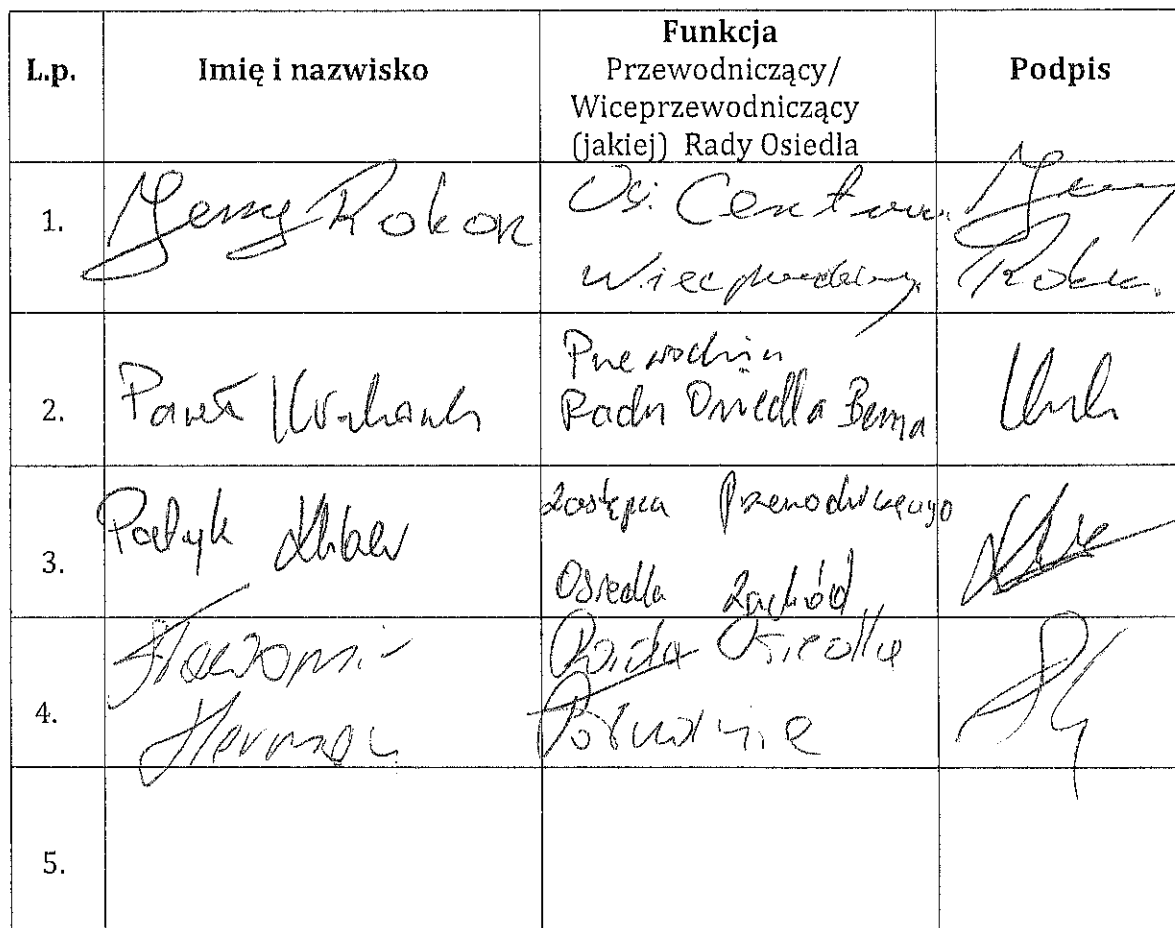 L.p.
Imię i nazwisko
Funkcja
Przewodniczący/
Wiceprzewodniczący
(jakiej) Rady Osiedla
Podpis
1.
Jerzy Rokon
Os. Centrum
2.
Paweł
Rada Osiedla Bema
3.
Patryk
Zastępca Przewodniczącego
Osiedla Zachód
4.
Sławomir
Herman
Rada Osiedla
Południe
5.